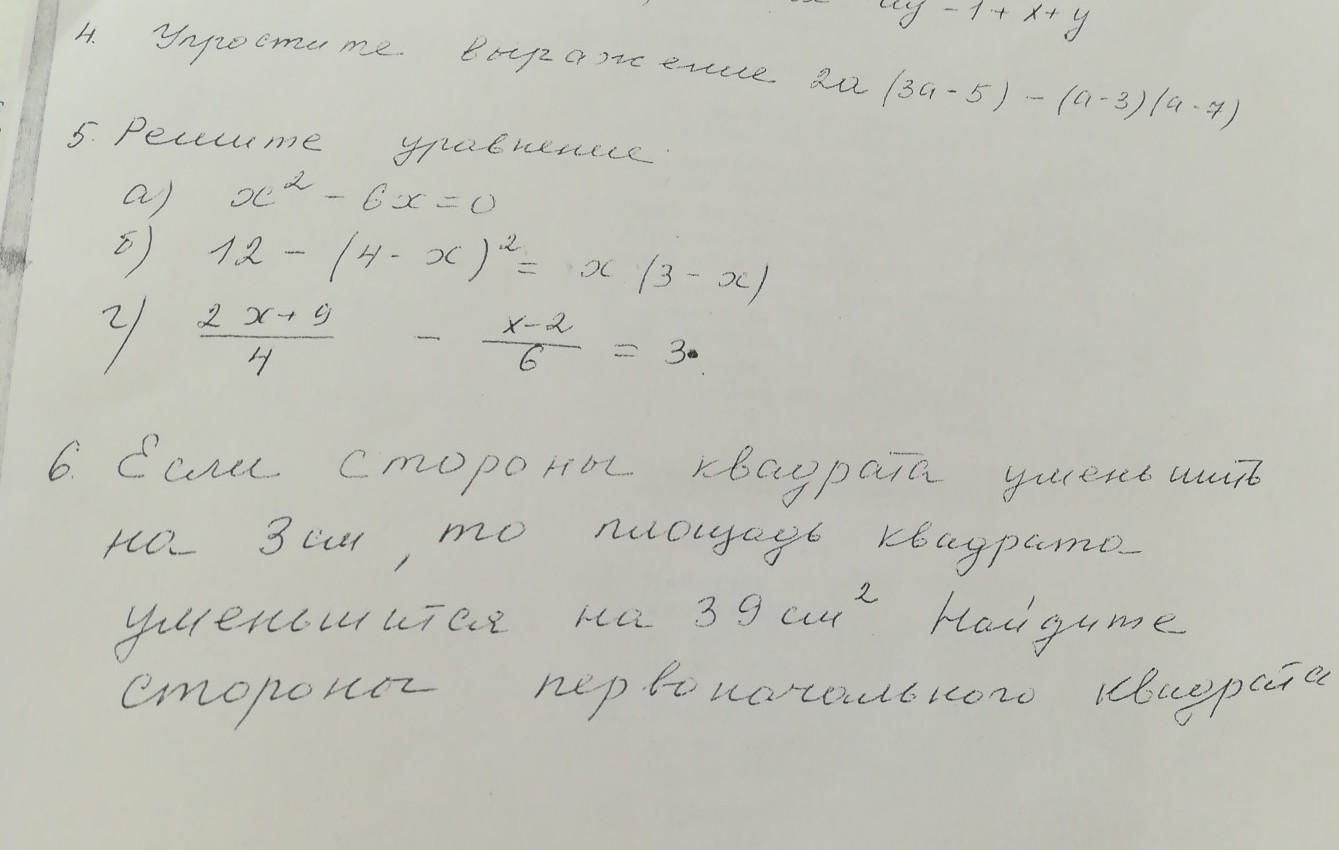 ay - 1 + x + y
4. Упростите выражение 2a (3a - 5) - (a - 3)(a - 7)
5. Решите уравнение
а) x² - 6x = 0
б) 12 - (4 - x)² = x (3 - x)
г) (2x + 9)/4 - (x - 2)/6 = 3.
6. Если стороны квадрата уменьшить
на 3 см, то площадь квадрата
уменьшится на 39 см² Найдите
стороны первоначального квадрата